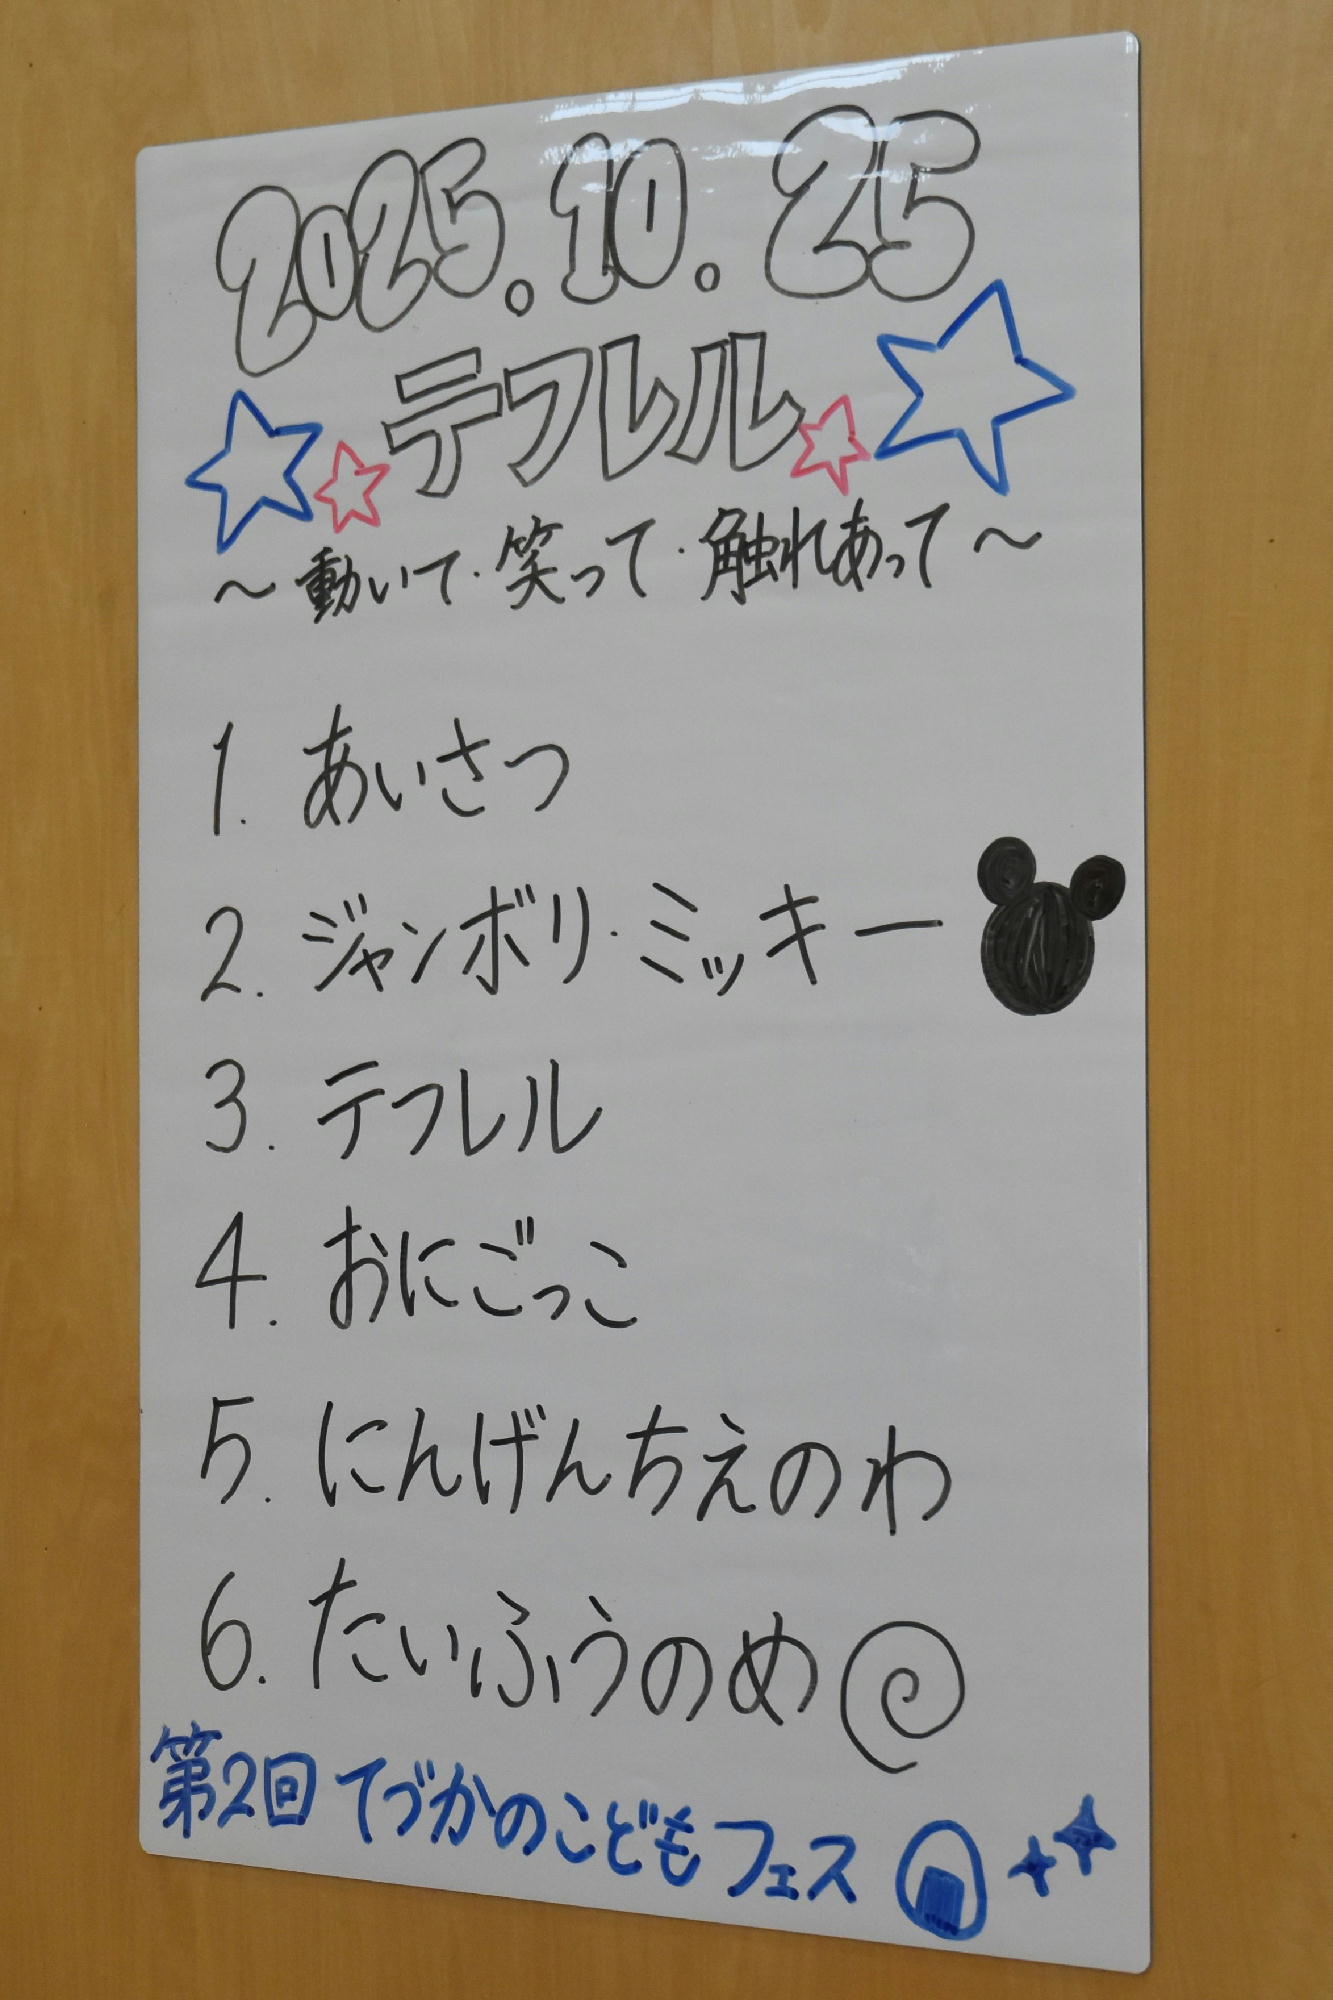 2025.10.25
テフレル
～動いて・笑って・触れあって～
1. あいさつ
2. ジャンボリ・ミッキー
3. テフレル
4. おにごっこ
5. にんげんちえのわ
6. たいふうのめ
第2回てづかのこどもフェス